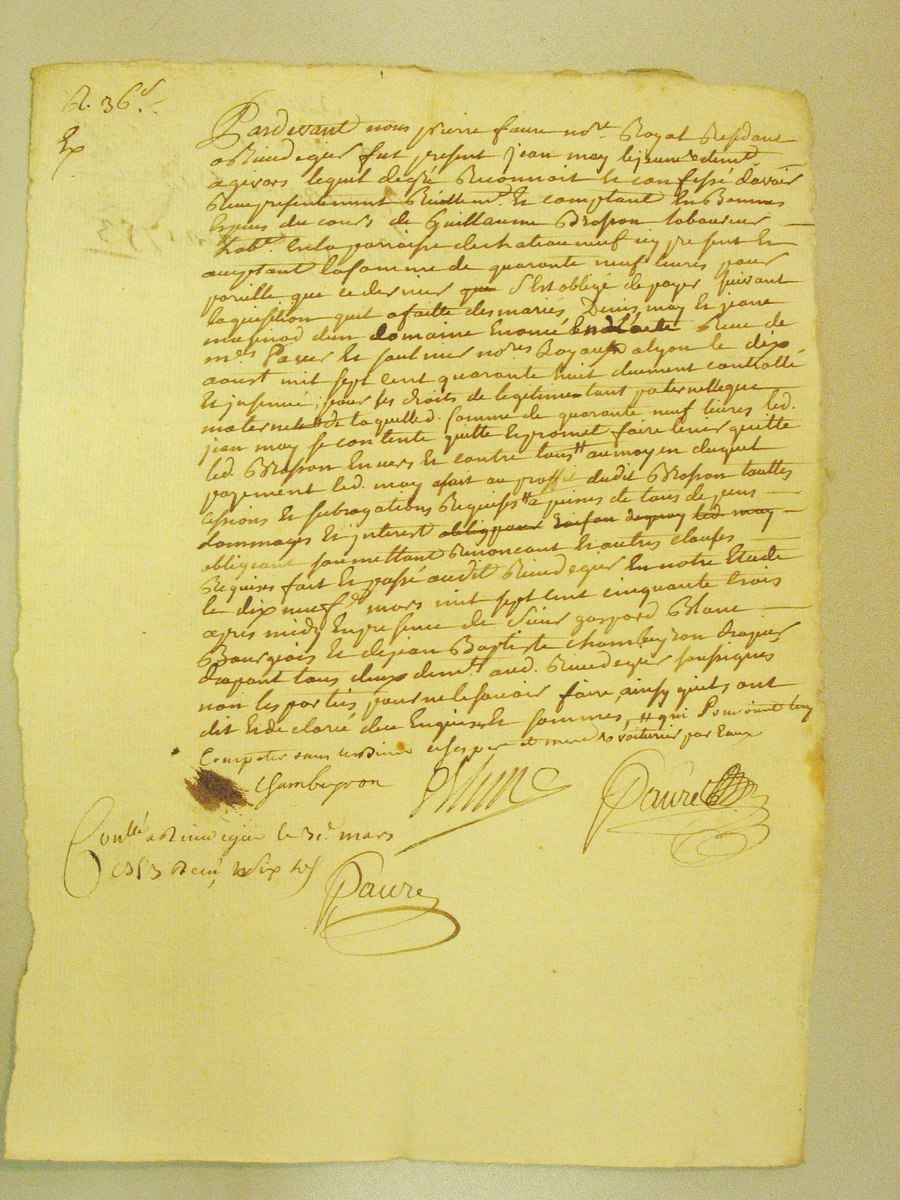 R. 36 s.
Ex
Pardevant nous pierre faure nore Royal Residant
a Rivedegier fut present jean may lejeune demt
a givors lequel degré Reconnait et confessé davoir
Reu presentement Réellemt Et comptant En Bonnes
Espèces du cours de Guillaume Brosson laboureur
habt En la parroisse de chateauneuf icy present Et
acceptant la somme de quarante neuf livres pour
pareille que ce dernier que s'Est obligé de payer suivant
laquisition quil a faitte des mariés Denis may Et jeanne
d'un domaine Enomé Reue de
mes Et saulnier nores Royaux a lyon le dix
aoust mil sept cent quarante huit duement controllé
Et insinué, pour ses droits de legitimes tant paternelle que
maternelle de laquelled. somme de quarante neuf livres led.
jean may se contente quitte Et promet faire tenir quitte
led. Brosson Envers Et contre tous # au moyen duquel
payement led. may a fait au proffit dudit Brosson touttes
cessions Et subrogations Requises # a peines de tous depens
dommages Et interest
obligeant soumettant Renoncant Et autres clauses
Requises fait Et passé audit Rivedegier En notre Etude
le dix neuf mars mil sept cent cinquante trois
apres midy En presence de Sieur gaspard Blanc
Bourgeois Et de jean Baptiste chambeyron drapier
drapant tous deux demts aud. Rivedegier soussignes
non les parties pour ne le scavoir faire ainsy quils ont
dit Et declaré deue Enquises Et sommés, # qui Pourraient luy
Competer dans ses pere et mere voiturier par Eaux
Chambeyron Blanc Faure
Conllé a Rivedegier le 31e mars
1753 Receu six s.
Faure